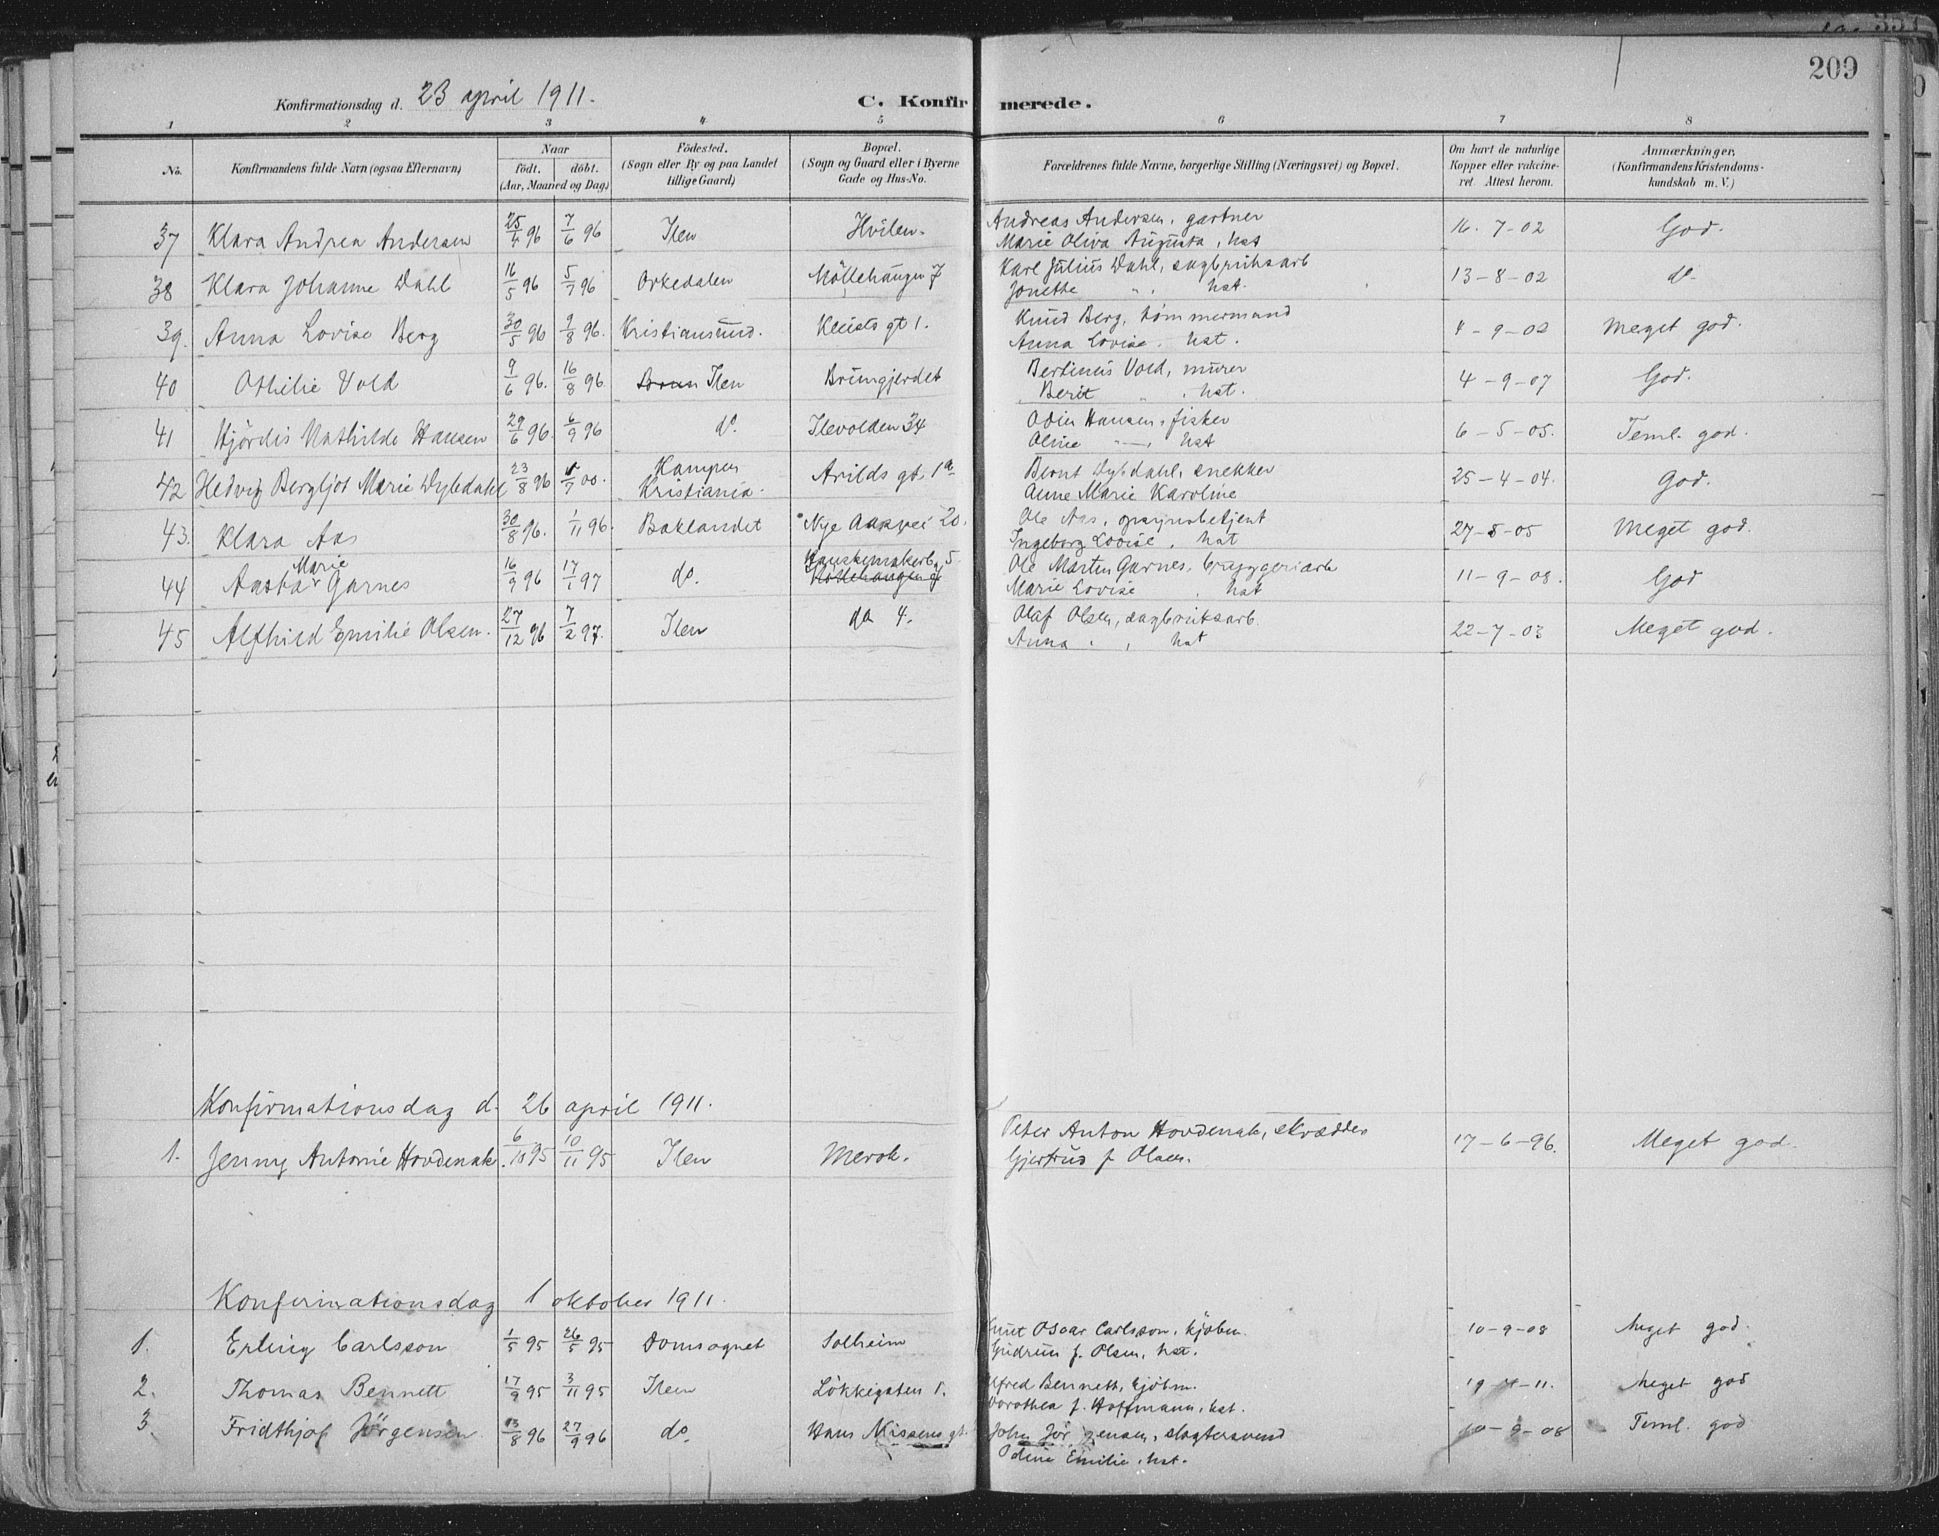 209
Konfirmationsdag d. 23 april 1911.
C. Konfirmerede.
1 2 3 4 5 6 7 8
No. Konfirmandens fulde Navn (ogsaa Efternavn) Naar födt. döbt. (Aar, Maaned og Dag) Födested. (Sogn eller By og paa Landet tillige Gaard) Bopæl. (Sogn og Gaard eller i Byerne Gade og Hus-No. Forældrenes fulde Navne, borgerlige Stilling (Næringsvei) og Bopæl. Om havt de naturlige Kopper eller vakcineret. Attest herom. Anmærkninger. (Konfirmandens Kristendomskundskab m. V.)
37 Klara Andrea Andersen 25/4 96 7/6 96 Ilen Hvilen. Andreas Andersen, gartner 16-7-02 God.
Marie Oliva Augusta, hst
38 Klara Johanne Dahl 16/5 96 5/7 96 Orkedalen Möllehaugen 7 Karl Julius Dahl, sagbruksarb 13-8-02 do.
Jonette " , hst.
39. Anna Lovise Berg 30/5 96 9/8 96. Kristiansund. gt 1. Knud Berg, tömmermand 4-9-02 Meget god.
Anna Lovise. hst.
40 Othilie Vold 9/6 96. 16/8 96 Ilen Brungjerdet Bertineus Vold, murer 4-9-07 God.
Berit " , hst.
41 Hjördis Mathilde Hansen 29/6 96. 6/9 96 do. Ilevolden 34 Odin Hansen, fisker 6-5-05. Teml. god.
Oline " , hst
42 Hedvig Bergljot Marie Dybdahl 23/8 96 /7 00. Kampen Kristiania. Arilds gt. 1a Bernt Dybdahl, snekker 25-4-04. God.
Anne Marie Karoline
43. Klara Aas 30/8 96. 1/11 96. Baklandet Nye Aakvei 20. Ole Aas, opsynsbetjent 27-5-05 Meget god.
Ingeborg Lovise, hst
44 Aasta Marie Garnes 16/9 96 17/1 97 do. Hanskemakerb. 5. Möllehaugen Ole Martin Garnes, bryggeriarb 11-9-08. God
Marie Lovise , hst
45 Alfhild Emilie Olsen. 27/12 96 7/2 97. Ilen do 4. Olaf Olsen, sagbruksarb. 22-7-03 Meget god.
Anna " , hst
Konfirmationsdag d. 26 april 1911.
1. Jenny Antonie Hovdenak. 6/10 95 10/11 95 Ilen Merok. Peter Anton Hovdenak, skrædder 17-6-96. Meget god.
Gjertrud f. Olsen.
Konfirmationsdag 1 oktober 1911.
1. Erling Carlsson 1/5 95 26/5 95 Domsognet Solheim Oscar Carlsson, kjöbm. 10-9-08 Meget god.
Gudrun f. Olsen, hst.
2. Thomas Bennett 17/9 95 3/11 95 Ilen Lökkegaten 1. Alfred Bennett, kjöbm. 19-4-11. Meget god
Dorothea f. Hoffmann, hst.
3 Fridthjof Jörgensen 13/8 96 27/9 96 do. Hans Nissens gt. John Jörgensen, slagtersvend 10-9-08 Teml. god
Odine Emilie, hst.